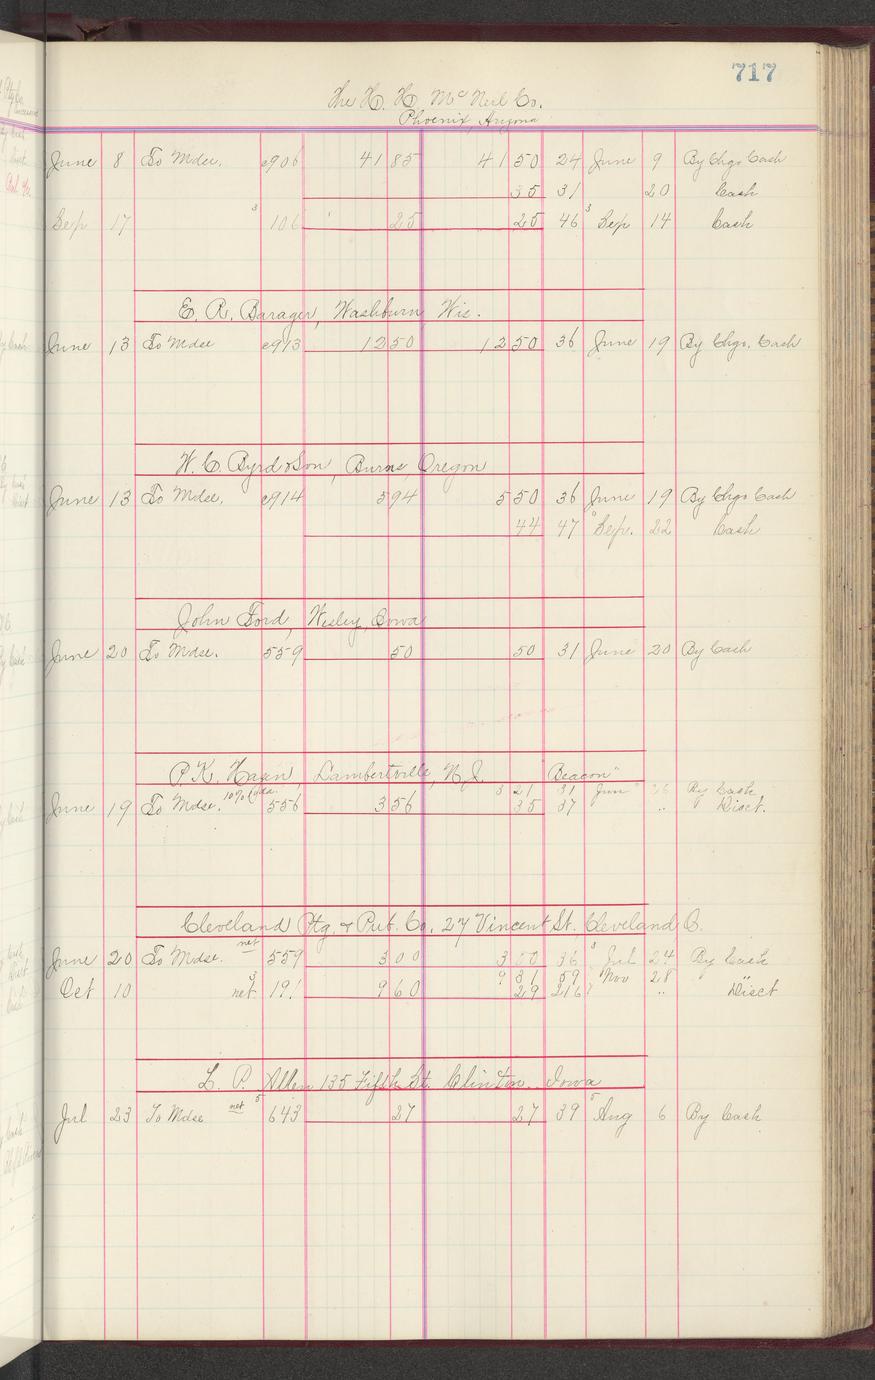 717
The H. H. McNeil Co.
Phoenix, Arizona
June 8 To Mdse. c906 41 85 41 50 24 June 9 By Chgo Cash
35 31 20 Cash
Sep 17 3 106 25 25 46 3 Sep 14 Cash
E. R. Barager, Washburn, Wis.
June 13 To Mdse c913 12 50 12 50 36 June 19 By Chgo. Cash
W. C. Byrd & Son, Burns, Oregon
June 13 To Mdse. c914 5 94 5 50 36 June 19 By Chgo Cash
44 47 Sep. 22 Cash
John Ford, Wesley, Iowa
June 20 To Mdse. 559 50 50 31 June 20 By Cash
P. K. Hazen Lambertville, N. J. "Beacon"
3 21 31 Jun 26 By Cash
June 19 To Mdse. 10% 556 3 56 35 37 " Disct.
Cleveland Ptg. & Pub. Co. 27 Vincent St. Cleveland O.
June 20 To Mdse. net 559 3 00 3 00 36 3 Jul 24 By Cash
9 31 59 Nov 28 "
Oct 10 net 3 191 9 60 29 216 " Disct
L. P. Allen 135 Fifth St. Clinton, Iowa
Jul 23 To Mdse net 5 643 27 27 39 5 Aug 6 By Cash